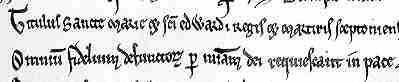 Titulus Sancte Marie & sci edwardi Regis & martiris sceptonien
Omnium fidelium defunctorum p miam dei requiescant in pace